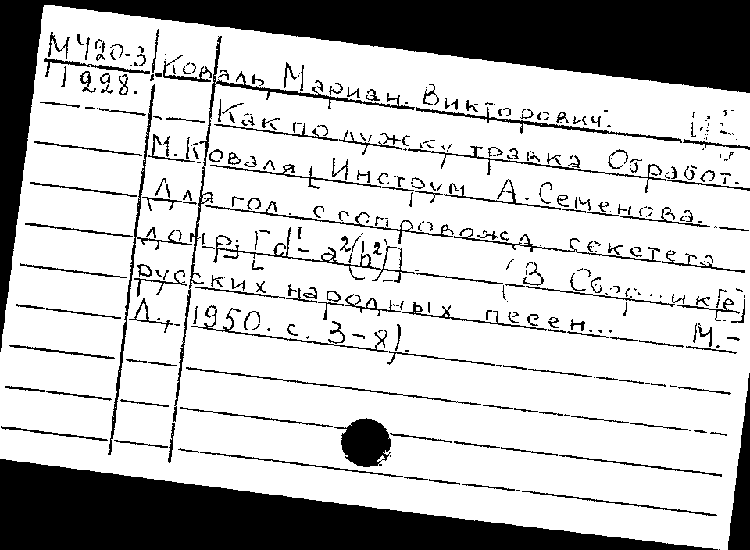 М 420-3
П 228.
Коваль, Мариан Викторович.
Как по лужку травка Обработ.
М. Коваля, Инструм А. Семенова.
Для гол. с сопровожд секстета
домр: [d¹-a²(h²)] (В Сборник[е]
русских народных песен... М.-
Л., 1950. с. 3-8).